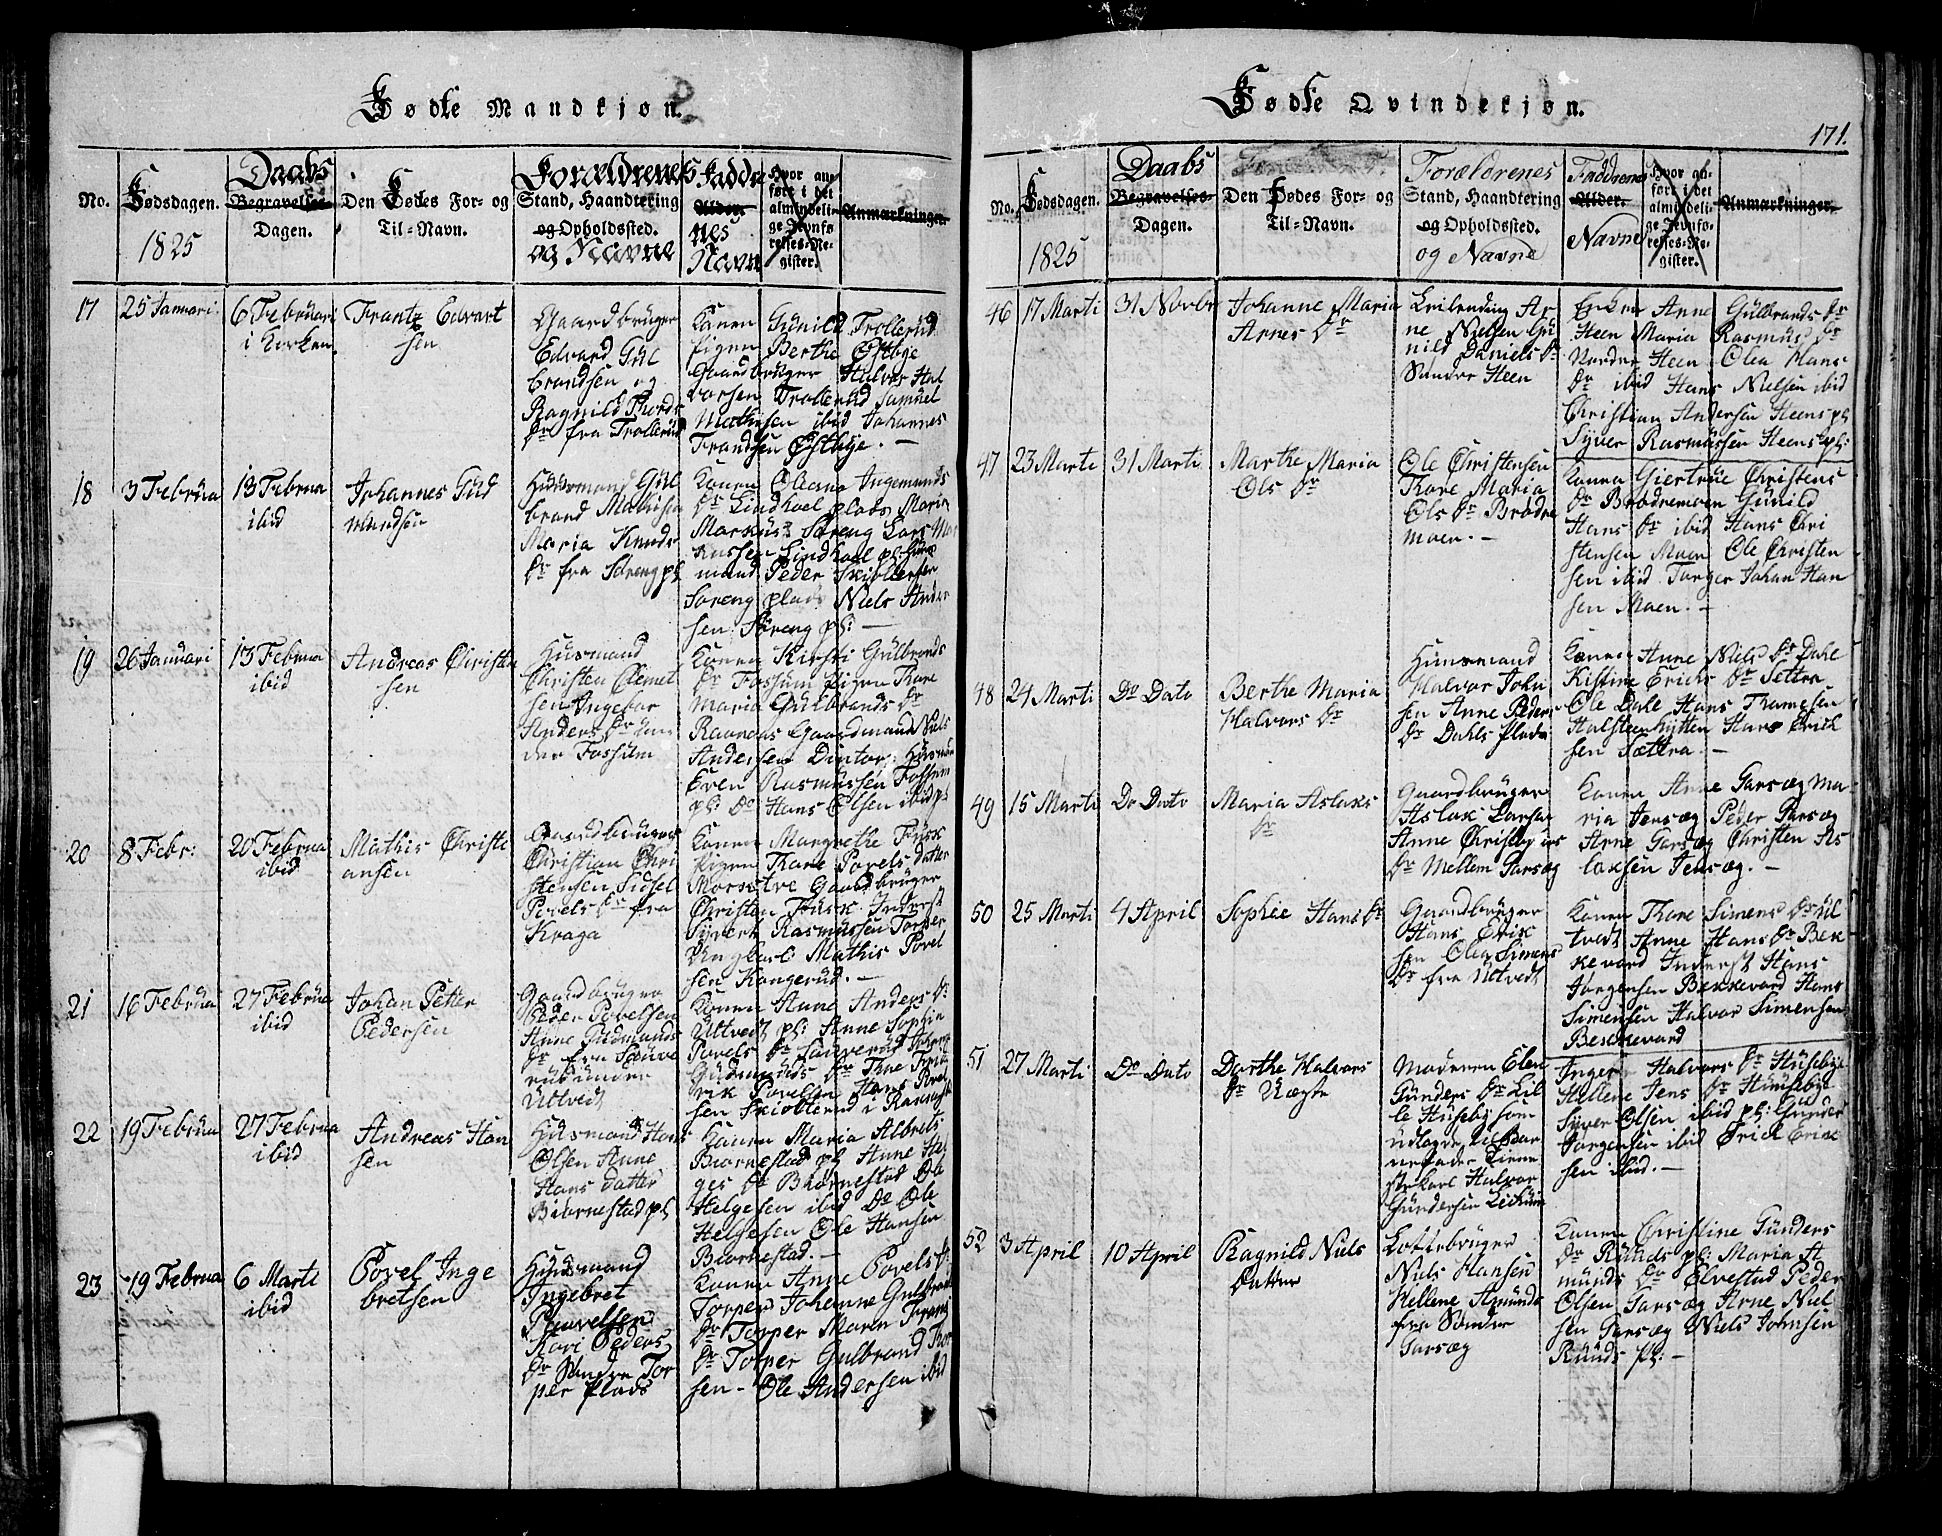 Fødte Mandkjøn.
No.
Fødsdagen.
1825
Daabs
Begravelses-
Dagen.
Den Fødtes For- og
Til-Navn.
Forældrenes
Stand, Haandtering
og Opholdssted.
og Navne
Faddre
Alder.
nes
Navne
Hvor an-
ført i det
almindeli-
ge Jevnfø-
relses-Re-
gister.
Anmærkninger.
17
25 Januari
6 Februari
i Kirken
Frantz Edvart
sen
Gaardbruger
Edvard Gul
brandsen og
Ragnild Thords
Dr fra Trollerud
Konen Gunild Trollerud
Pigen Berthe Østbye
Gaardbruger Halvor Hal
vorsen Trollerud Samuel
Mathisen ibid Johannes
Frandsen Østbye. —
18
3 Februa
13 Februa
ibid
Johannes Gud
mundsen
Husmand Gul
brand Mathisen
Maria Knuds
Dr fra Soreng pl
Konen Oleana Ingemunds
Dr Lindhoel plads Maria
Markus: Soreng Lars Mar
kussen Lindhoel pl: Huus
mand Peder Skiollersen
Soreng plads Niels Ander
sen Soreng pl: —
19
26 Januari
13 Februa
ibid
Andreas Christen
sen
Husmand
Christen Clemet
sen Ingebor
Anders Dr un
der Fossum
Konen Kirsti Gulbrands
Dr Fossum Pigen Thore
Maria Gulbrands Dr
Ravnaas Gaardmand Niels
Andersen Dintorp: Husman
Even Rasmussen Fossum
pl: Do Hans Olsen ibid pl
20
8 Febr:
20 Februa
ibid
Mathis Christi
ansen
Gaardbruger
Christian Chri
stensen Sidsel
Povels Dr fra
Kraga
Konen Margrethe Fusk
Pigen Thore Povels datter
Gaardbruger
Christen Fusk Inderst
Syvert Rasmussen Torper
Mathis Povel
sen Kongerud. —
21
16 Februa
27 Februa
ibid
Johan Petter
Pedersen
Gaardbruger
Peder Povelsen
Anne Gudmunds
Dr fra Sauve
rud under
Utvedt
Konen Anne Anders Dr
Utvedt pl: Anne Sophie
Povels Dr Sauverud
Gudmunds Dr
rik Povelsen Hans Povel
sen Skiollerud i
22
19 Februa
27 Februa
ibid
Andreas Han
sen
Husmand Hans
Olsen Anne
Hans datter
Biornestad pl
Konen Maria Albrets
Biornestad pl Anne Hel
ges Dr Biørnestad Do
Helgesen ibid Do Ole
Helgesen Ole Hansen
Biornestad. —
23
19 Februa
6 Marti
ibid
Povel Inge
bretsen
Husmand
Ingebret
Paavelsen
Kari Peders
Dr Søndre Tor
per Plads
Konen Anne Povels Dr
Torper Johanne Gulbrands
Dr Torper Maren Frans
Dr Torper Gulbrand Thor
sen - Ole Andersen ibid
Fødte Qvindekjøn.
171.
No.
Fødsdagen.
1825
Daabs
Begravelses-
Dagen.
Den Fødtes For- og
Til-Navn.
Forældrenes
Stand, Haandtering
og Opholdssted.
og Navne
Faddrenes
Alder.
Navne
Hvor an-
ført i det
almindeli-
ge Jevnfø-
relses-Re-
gister.
Anmærkninger.
46
17 Marti
31 Novbr
Johanne Maria
Arnes Dr
Leilending Ar
ne Nielsen Gu
nild Daniels Dr
Søndre Heen
Enken Anne Gulbrands Dr
Heen Maria Rasmus Dr
Nordre Heen Olea Hans
Dr ibid Hans Nielsen ibid
Christian Andersen Heens pl
Syver Rasmussen Heens pl:
47
23 Marti
31 Marti
Marthe Maria
Ols Dr
Ole Christensen
Thore Maria
Ols Dr Brødre
moen. -
Konen Giertrue Christens
Dr Brødremoen Gunild
Hans Dr ibid Hans Chri
stensen Moen Ole Christen
sen ibid Torger Johan Han
sen Moen. —
48
24 Marti
Do Dato
Berthe Maria
Halvors Dr
Huusmand
Halvor John
sen Anne Peders
Dr Dahls Plads
Konen Anne Niels Dr Dahl
Kistine Ericks Dr Settra
Ole Dahl Hans Thomesen
Halsteenhytten Hans Erich
sen Sættra. —
49
15 Marti
Do Dato
Maria Aslaks
Dr
Gaardbruger
Aslak Larsen
Anne Christophers
Dr Mellem Garsæg
Konen Anne Garsæg Ma-
ria Jensæg Peder Garsæg
Arne Garsæg Christen As
laksen Jensæg. —
50
25 Marti
4 April
Sophie Hans Dr
Gaardbruger
Hans Erik
sen Olea Simens
Dr fra Utvedt
Konen Thore Simens Dr Ul
tvedt Anne Hans Dr Bek
kevard Inderst Hans
Jørgensen Bekkevard Hans
Simensen Halvor Simensen
Beskkevard
51
27 Marti
Do Dato
Dorthe Halvors
Dr Uægte
Moderen Elen
Gunders Dr Lil
le Huseby som
udlagde til Bar
nefader Tiene
stekarl Halvor
Gundersen
Inger Halvors Dr Huseby
Hellene Jens Dr Huuseby
Siver Olsen ibid pl: Gunder
Jorgensen ibid Erick Erik
sen ibid. —
52
3 April
10 April
Ragnild Niels
Datter
Lottebruger
Niels Hansen
Hellene Amunds
fra Søndre
Garsæg
Konen Christine Gunders
Dr Ruuds pl: Maria A
munds Dr Elvestad Peder
Olsen Garsæg Arne Niel
sen Garsæg Niels Jonnsen
Ruuds pl: —